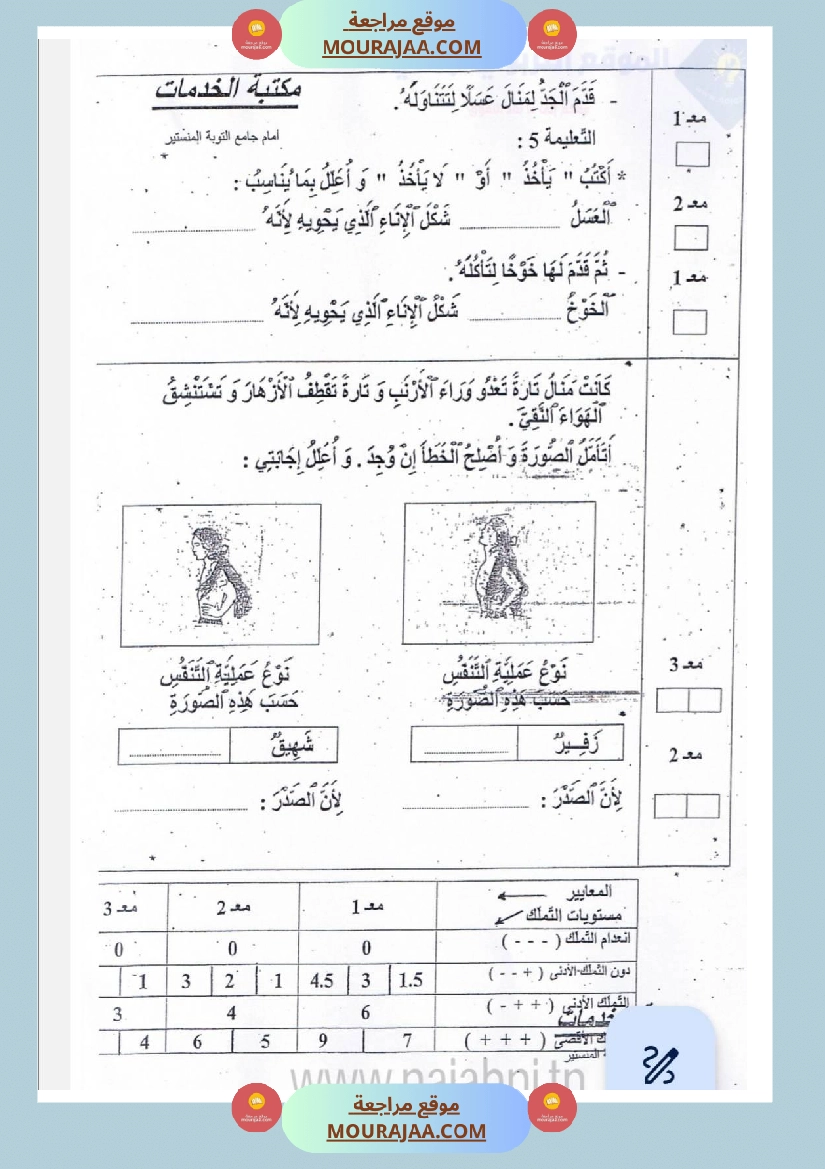 موقع مراجعة
MOURAJAA.COM
مكتبة الخدمات
أمام جامع التوبة المنستير
- قَدَّمَ ٱلْجَدُّ لِمَنَالَ عَسَلًا لِتَتَنَاوَلَهُ.
معـ 1
التّعليمة 5 :
* أَكْتُبُ " يَأْخُذُ " أَوْ " لَا يَأْخُذُ " وَ أُعَلِّلُ بِمَا يُنَاسِبُ :
معـ 2
ٱلْعَسَلُ ............ شَكْلَ ٱلْإِنَاءِ ٱلَّذِي يَحْوِيهِ لِأَنَّهُ ............
- ثُمَّ قَدَّمَ لَهَا خَوْخًا لِتَأْكُلَهُ.
معـ 1
ٱلْخَوْخُ ............ شَكْلَ ٱلْإِنَاءِ ٱلَّذِي يَحْوِيهِ لِأَنَّهُ ............
كَانَتْ مَنَالُ تَارَةً تَعْدُو وَرَاءَ ٱلْأَرْنَبِ وَ تَارَةً تَقْطِفُ ٱلْأَزْهَارَ وَ تَسْتَنْشِقُ
ٱلْهَوَاءَ ٱلنَّقِيَّ .
أَتَأَمَّلُ ٱلصُّورَةَ وَ أُصْلِحُ ٱلْخَطَأَ إِنْ وُجِدَ . وَ أُعَلِّلُ إِجَابَتِي :
نَوْعُ عَمَلِيَّةِ ٱلتَّنَفُّسِ
حَسَبَ هَذِهِ ٱلصُّورَةِ
نَوْعُ عَمَلِيَّةِ ٱلتَّنَفُّسِ
حَسَبَ هَذِهِ ٱلصُّورَةِ
معـ 3
زَفِيرٌ ............
شَهِيقٌ ............
معـ 2
لِأَنَّ ٱلصَّدْرَ : ............
لِأَنَّ ٱلصَّدْرَ : ............
المعايير
مستويات التملك
معـ 1 معـ 2 معـ 3
انعدام التملك ( - - - ) 0 0 0
دون التملك الأدنى ( + - - ) 1.5 3 4.5 1 2 3 1
التملك الأدنى ( + + - ) 6 4 3
الأقصى ( + + + ) 7 9 5 6 4
المنستير
www.najahni.tn
موقع مراجعة
MOURAJAA.COM